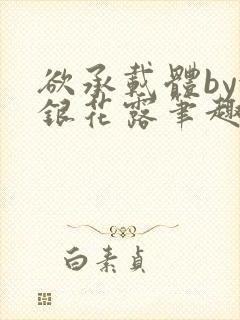 欲承載體by
銀花露筆趣
白素貞